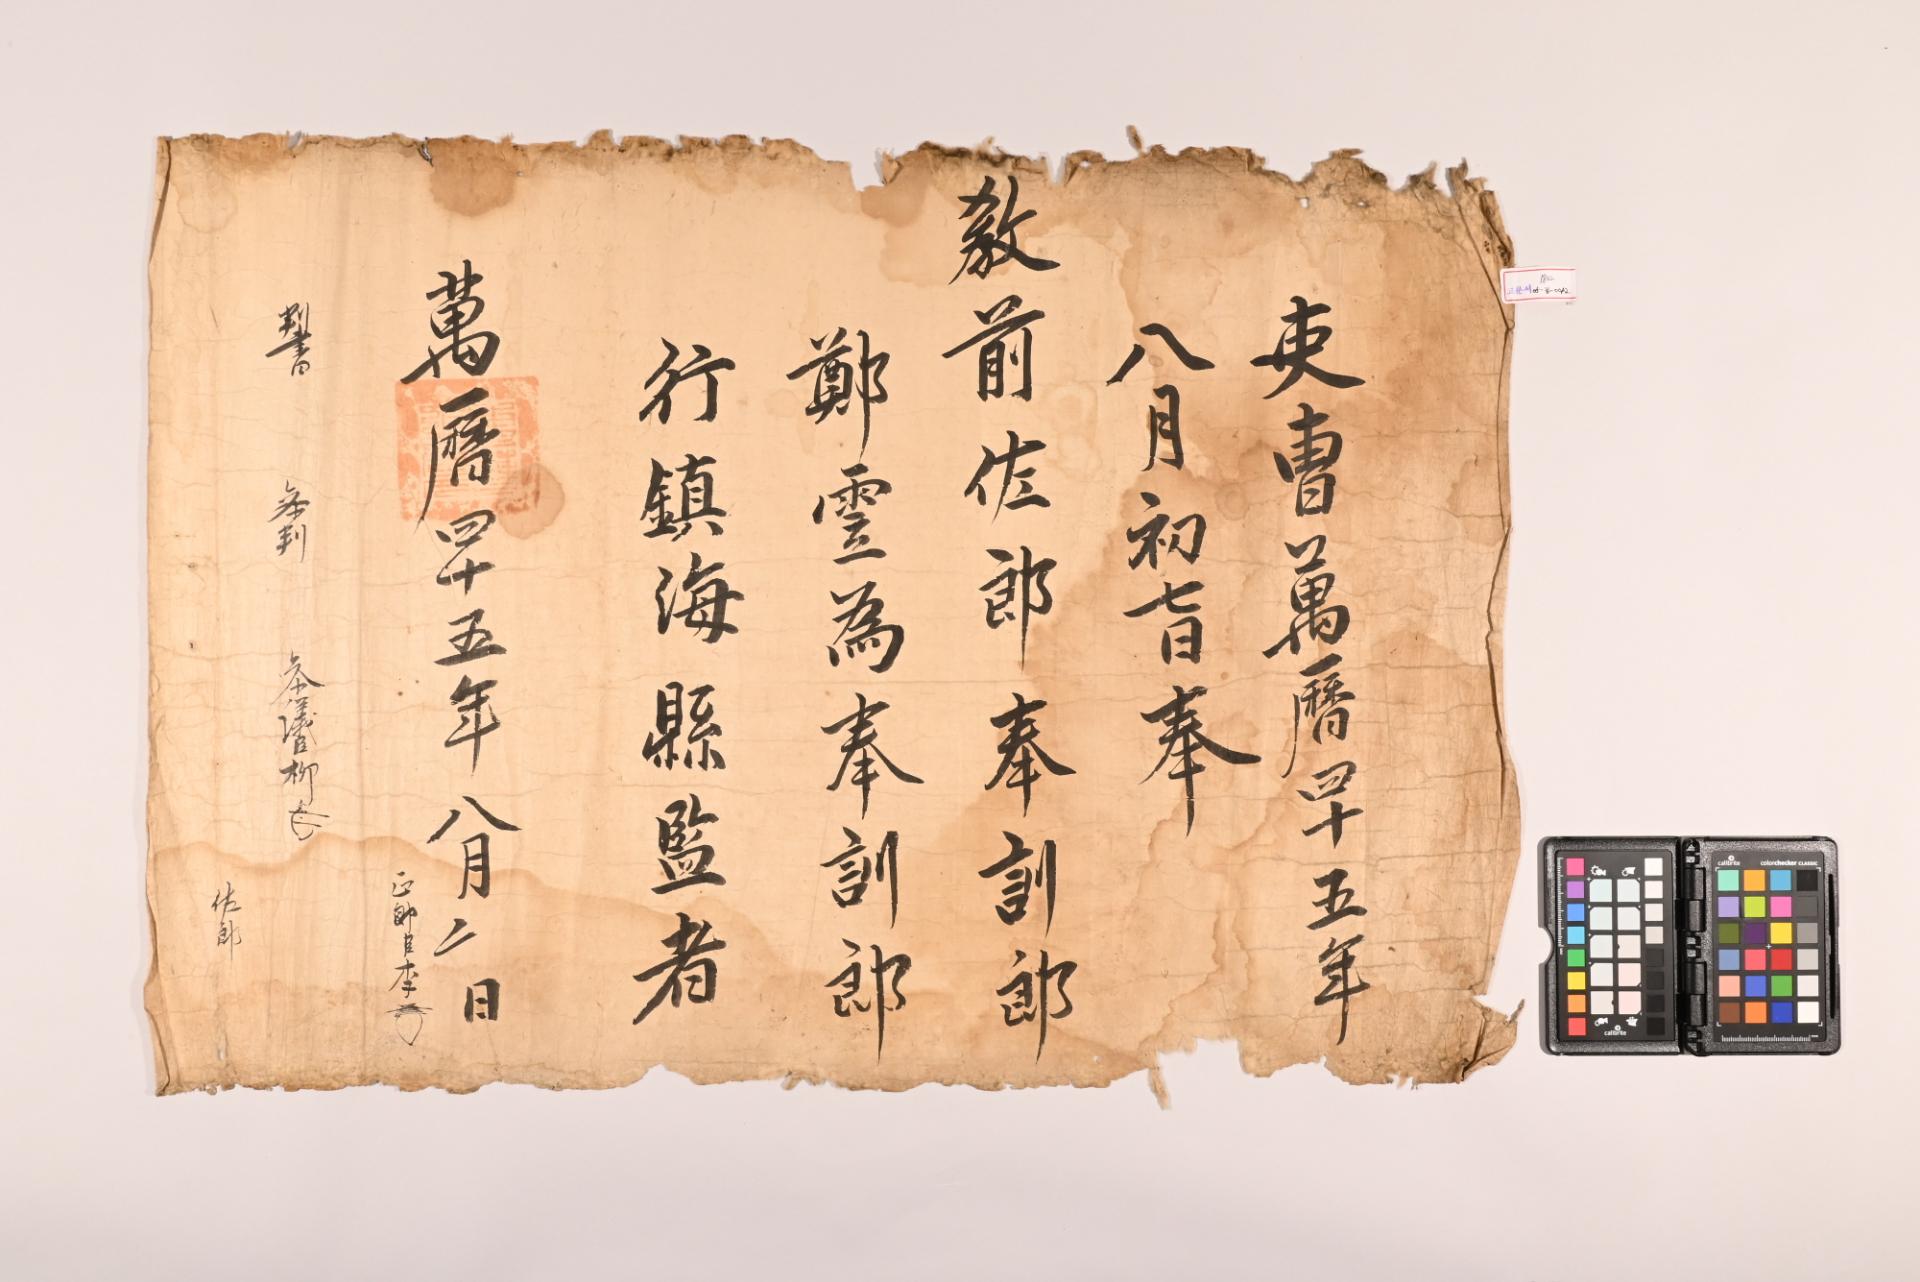 吏曺萬曆四十五年
八月初七日奉
敎前佐郎奉訓郎
鄭雲為奉訓郎
行鎮海縣監者
萬曆四十五年八月二日
正郎臣李
判書
叅判
叅議臣柳
佐郎
calibrite
colorchecker CLASSIC
calibrite